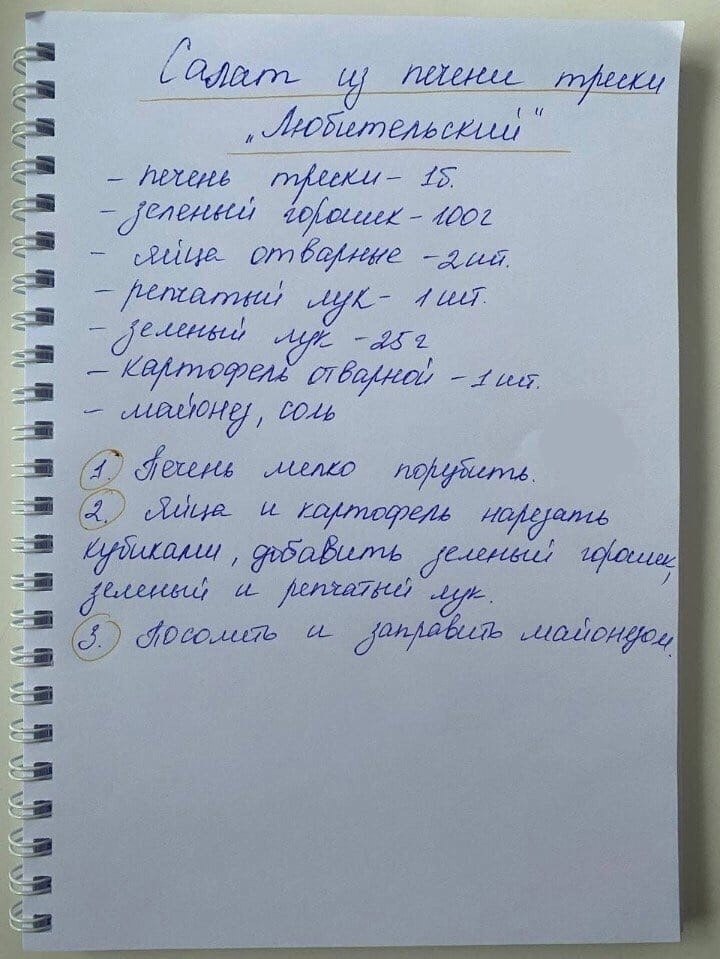 Салат из печени трески
„Любительский"
- печень трески - 1б.
- зеленый горошек - 100г
- яйца отварные - 2 шт.
- репчатый лук - 1 шт.
- зеленый лук - 25 г
- картофель отварной - 1 шт.
- майонез, соль
1. Печень мелко порубить.
2. Яйца и картофель нарезать
кубиками, добавить зеленый горошек,
зеленый и репчатый лук.
3. Посолить и заправить майонезом.